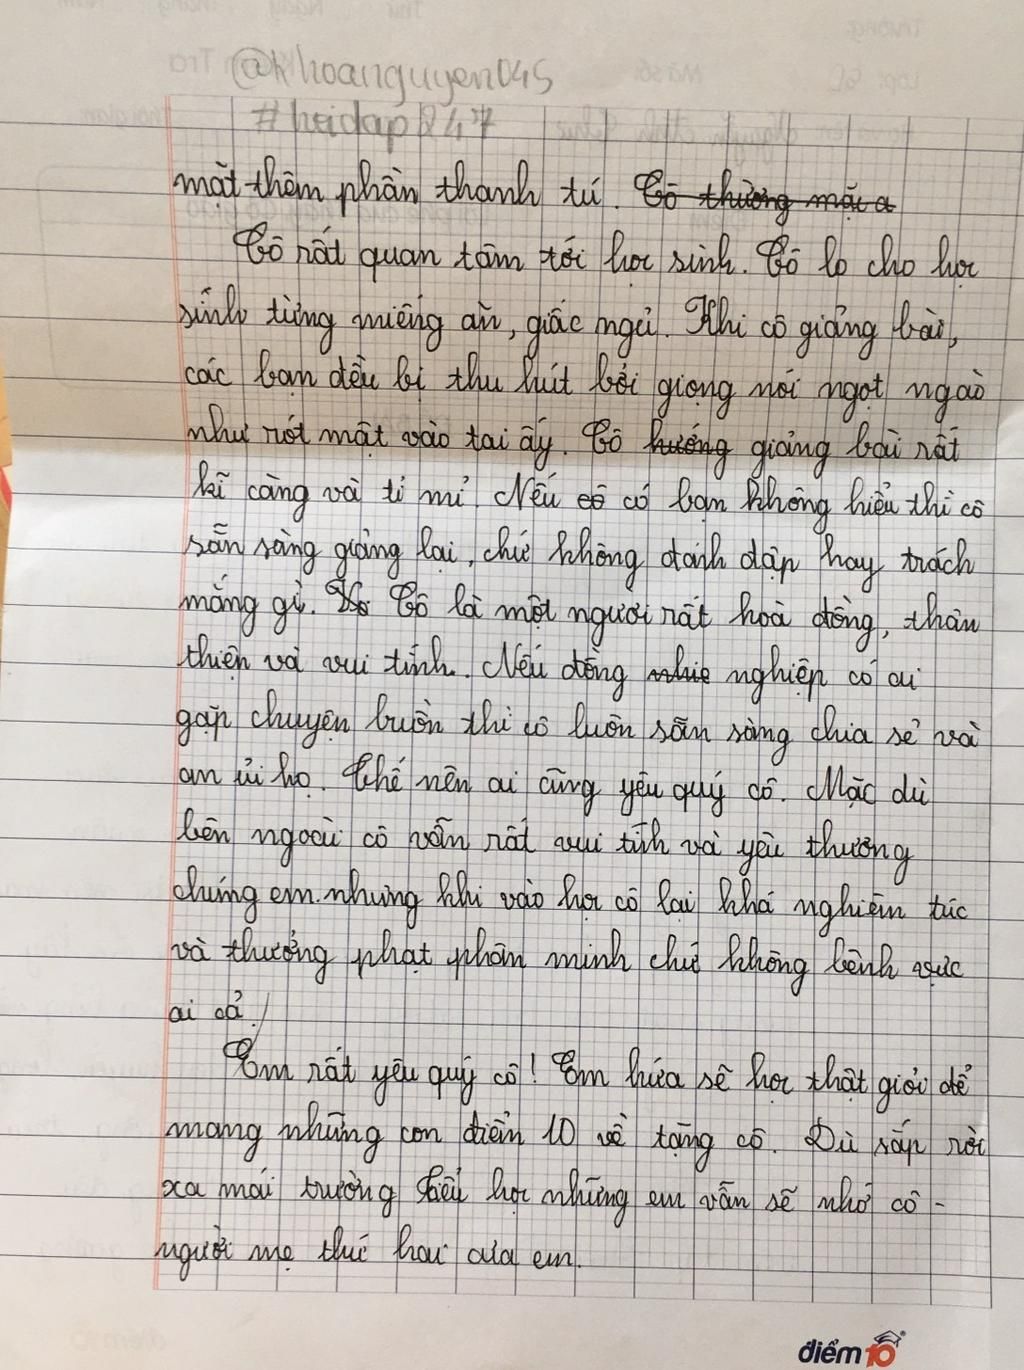 @khoanguyen045
#hoidap247
mặt thêm phần thanh tú. Cô thường mặ a
Cô rất quan tâm tới học sinh. Cô lo cho học
sinh từng miếng ăn, giấc ngủ. Khi cô giảng bài,
các bạn đều bị thu hút bởi giọng nói ngọt ngào
như rót mật vào tai ấy. Cô hướng giảng bài rất
kĩ càng và tỉ mỉ. Nếu cô có bạn không hiểu thì cô
sẵn sàng giảng lại, chứ không đánh đập hay trách
mắng gì. Cô là một người rất hoà đồng, thân
thiện và vui tính. Nếu đồng nghiệp có ai
gặp chuyện buồn thì cô luôn sẵn sàng chia sẻ và
an ủi họ. Thế nên ai cũng yêu quý cô. Mặc dù
bên ngoài cô vẫn rất vui tính và yêu thương
chúng em nhưng khi vào học cô lại khá nghiêm túc
và thưởng phạt phân minh chứ không bênh vực
ai cả.
Em rất yêu quý cô! Em hứa sẽ học thật giỏi để
mang những con điểm 10 về tặng cô. Dù sắp rời
xa mái trường tiểu học nhưng em vẫn sẽ nhớ cô -
người mẹ thứ hai của em.
điểm 10